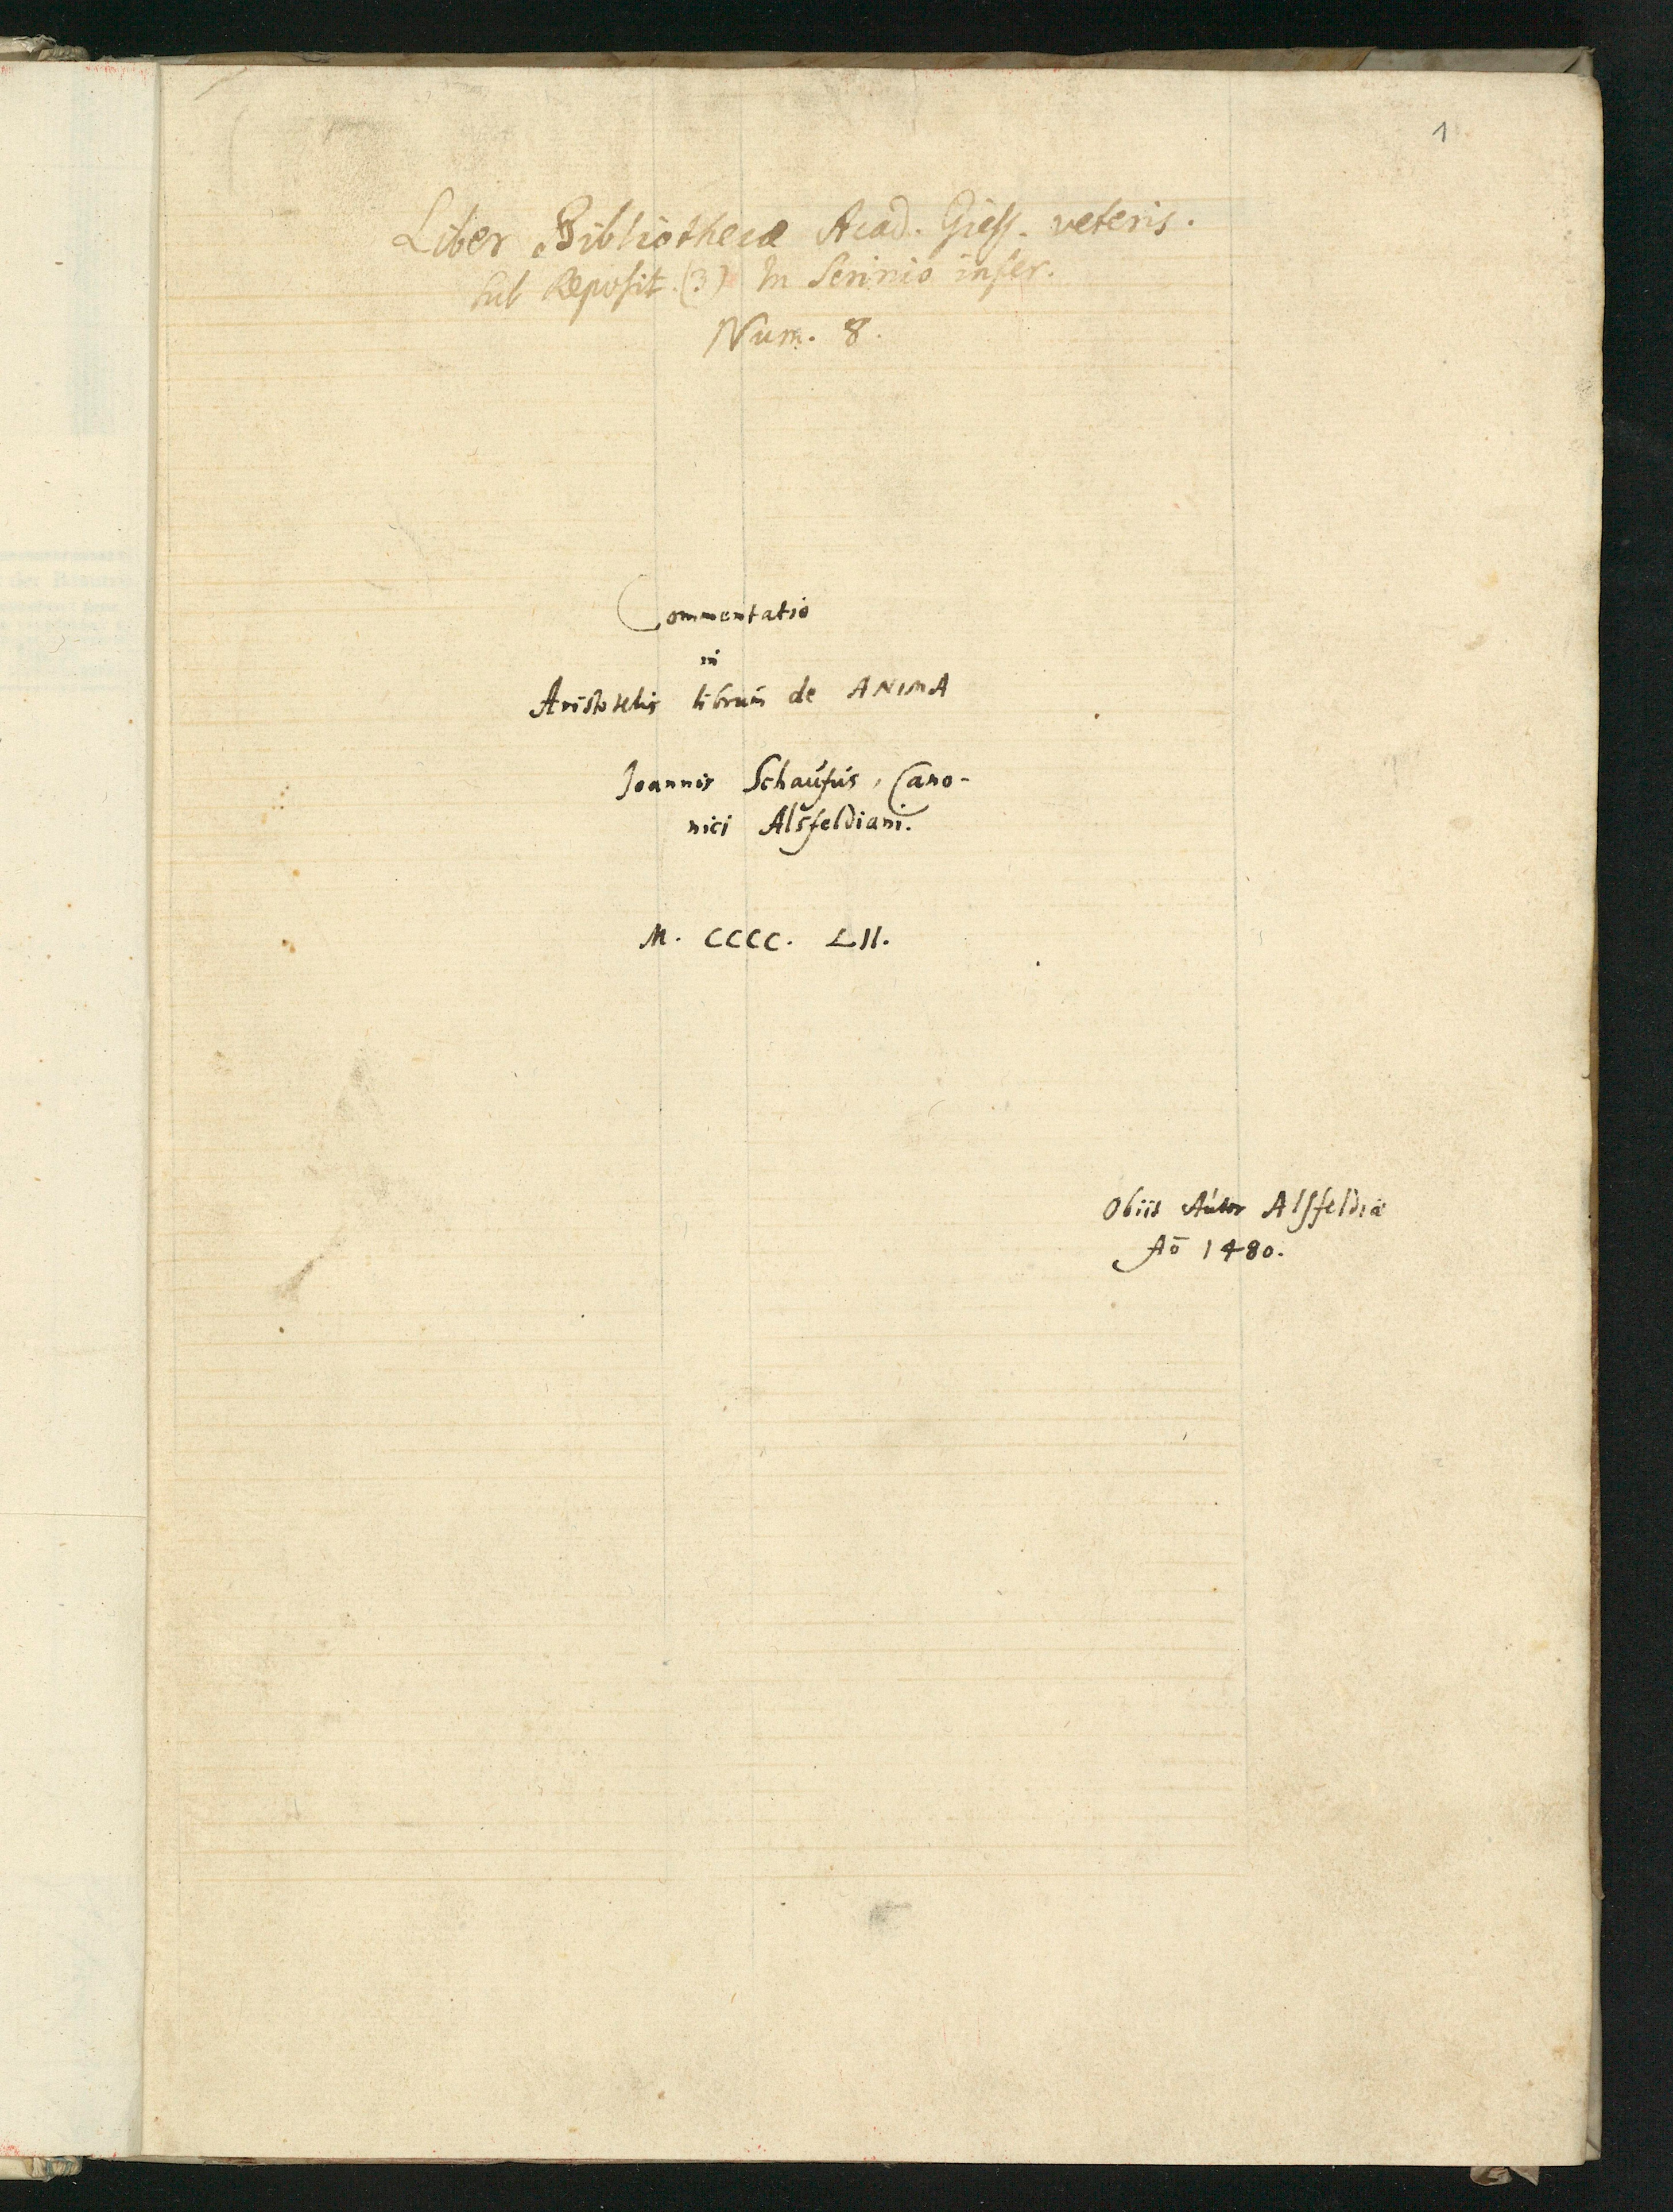 1
Liber Bibliothecæ Acad. Giess. veteris.
Sub Reposit. (3) In Scrinio infer.
Num. 8.
Commentatio
in
Aristotelis librum de ANIMA
Joannis Schaufus, Cano-
nici Alsfeldiani.
M. CCCC. LII.
Obiit Autor Alsfeldiæ
Aō 1480.